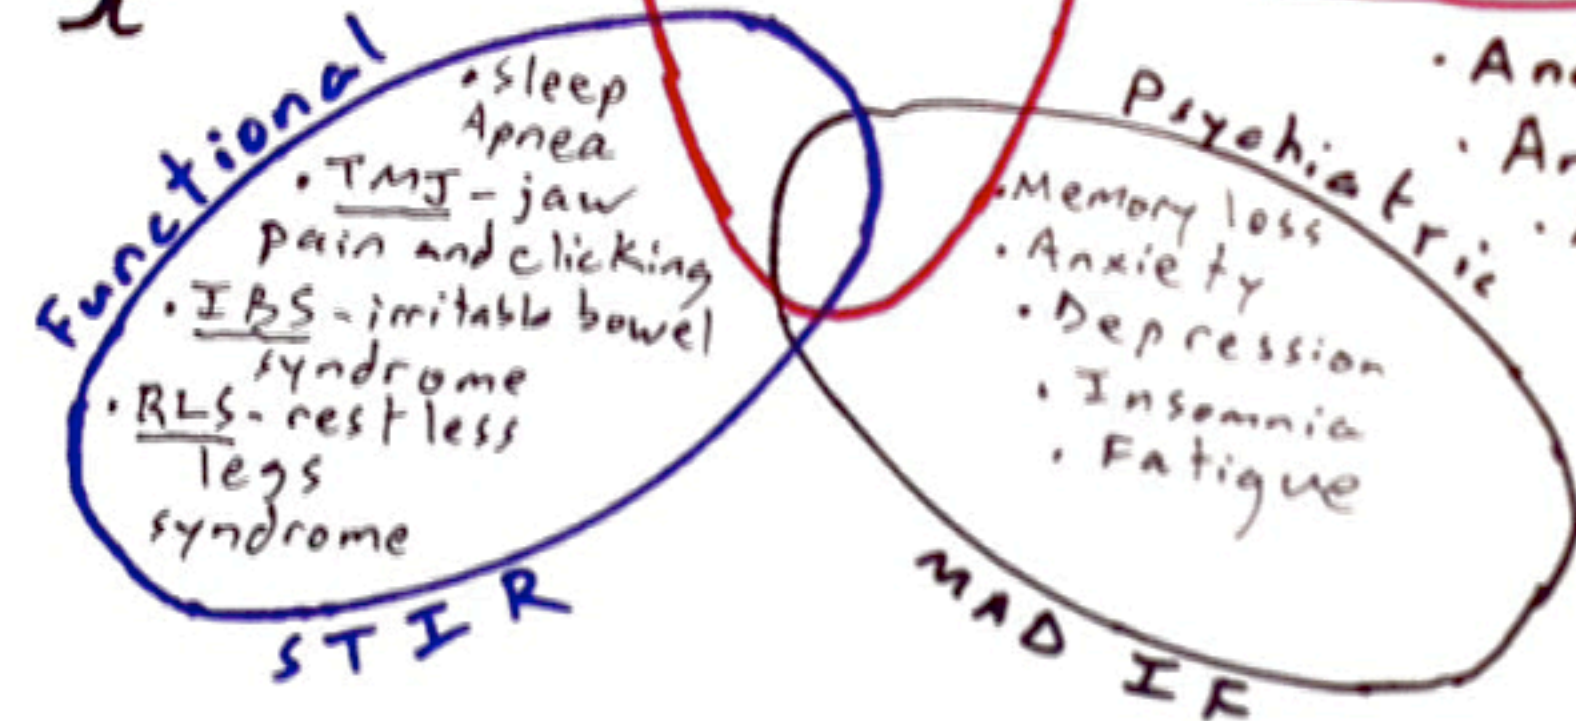 Functional
• Sleep
Apnea
• TMJ - jaw
pain and clicking
• IBS - irritable bowel
syndrome
• RLS - restless
legs
syndrome
STIR
Psychiatric
• Memory loss
• Anxiety
• Depression
• Insomnia
• Fatigue
MAD IF